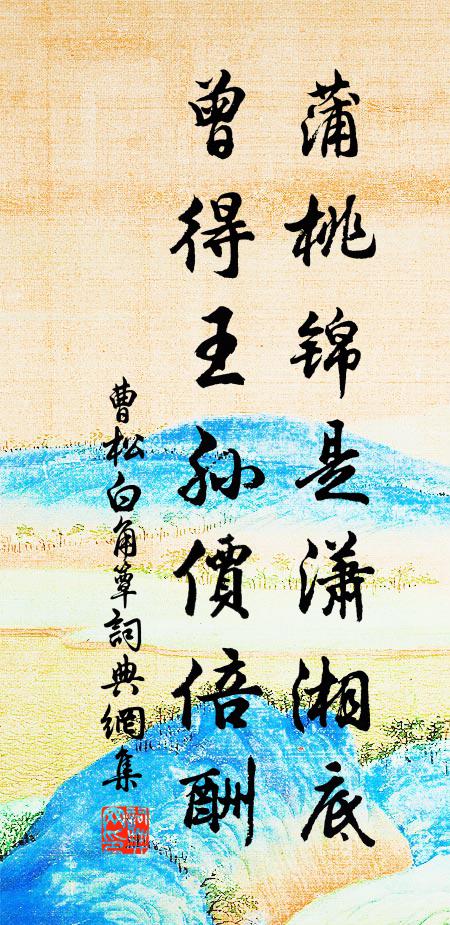 蒲桃锦是潇湘底
曾得王孙價倍酬
曹松白角簟詞典網集